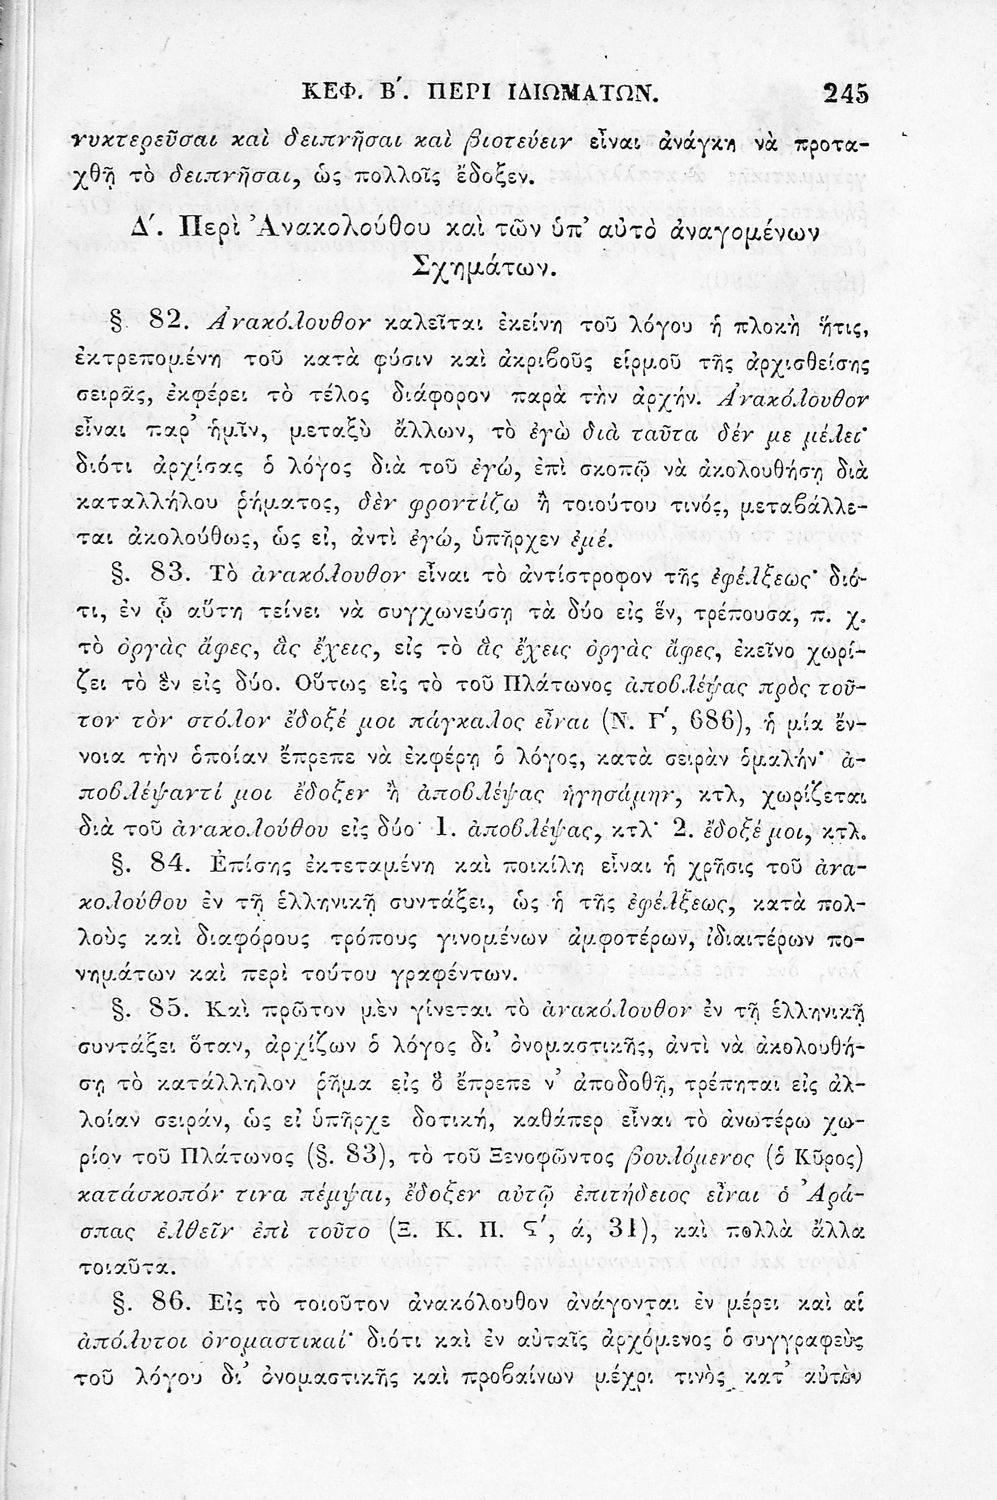 ΚΕΦ. Β΄. ΠΕΡΙ ΙΔΙΩΜΑΤΩΝ. 245
νυκτερεῦσαι καὶ δειπνῆσαι καὶ βιοτεύειν εἶναι ἀνάγκη νὰ προτα-
χθῇ τὸ δειπνῆσαι, ὡς πολλοῖς ἔδοξεν.
Δ΄. Περὶ Ἀνακολούθου καὶ τῶν ὑπ᾽ αὐτὸ ἀναγομένων
Σχημάτων.
§. 82. Ἀνακόλουθον καλεῖται ἐκείνη τοῦ λόγου ἡ πλοκὴ ἥτις,
ἐκτρεπομένη τοῦ κατὰ φύσιν καὶ ἀκριβοῦς εἱρμοῦ τῆς ἀρχισθείσης
σειρᾶς, ἐκφέρει τὸ τέλος διάφορον παρὰ τὴν ἀρχήν. Ἀνακόλουθον
εἶναι παρ᾽ ἡμῖν, μεταξὺ ἄλλων, τὸ ἐγὼ διὰ ταῦτα δέν με μέλει·
διότι ἀρχίσας ὁ λόγος διὰ τοῦ ἐγώ, ἐπὶ σκοπῷ νὰ ἀκολουθήσῃ διὰ
καταλλήλου ῥήματος, δὲν φροντίζω ἢ τοιούτου τινός, μεταβάλλε-
ται ἀκολούθως, ὡς εἰ, ἀντὶ ἐγώ, ὑπῆρχεν ἐμέ.
§. 83. Τὸ ἀνακόλουθον εἶναι τὸ ἀντίστροφον τῆς ἐφέλξεως· διό-
τι, ἐν ᾧ αὕτη τείνει νὰ συγχωνεύσῃ τὰ δύο εἰς ἕν, τρέπουσα, π. χ.
τὸ ὀργὰς ἄφες, ἃς ἔχεις, εἰς τὸ ἃς ἔχεις ὀργὰς ἄφες, ἐκεῖνο χωρί-
ζει τὸ ἓν εἰς δύο. Οὕτως εἰς τὸ τοῦ Πλάτωνος ἀποβλέψας πρὸς τοῦ-
τον τὸν στόλον ἔδοξέ μοι πάγκαλος εἶναι (Ν. Γ΄, 686), ἡ μία ἔν-
νοια τὴν ὁποίαν ἔπρεπε νὰ ἐκφέρῃ ὁ λόγος, κατὰ σειρὰν ὁμαλήν· ἀ-
ποβλέψαντί μοι ἔδοξεν ἢ ἀποβλέψας ἡγησάμην, κτλ, χωρίζεται
διὰ τοῦ ἀνακολούθου εἰς δύο· 1. ἀποβλέψας, κτλ· 2. ἔδοξέ μοι, κτλ.
§. 84. Ἐπίσης ἐκτεταμένη καὶ ποικίλη εἶναι ἡ χρῆσις τοῦ ἀνα-
κολούθου ἐν τῇ ἑλληνικῇ συντάξει, ὡς ἡ τῆς ἐφέλξεως, κατὰ πολ-
λοὺς καὶ διαφόρους τρόπους γινομένων ἀμφοτέρων, ἰδιαιτέρων πο-
νημάτων καὶ περὶ τούτου γραφέντων.
§. 85. Καὶ πρῶτον μὲν γίνεται τὸ ἀνακόλουθον ἐν τῇ ἑλληνικῇ
συντάξει ὅταν, ἀρχίζων ὁ λόγος δι᾽ ὀνομαστικῆς, ἀντὶ νὰ ἀκολουθή-
σῃ τὸ κατάλληλον ῥῆμα εἰς ὃ ἔπρεπε ν᾽ ἀποδοθῇ, τρέπηται εἰς ἀλ-
λοίαν σειράν, ὡς εἰ ὑπῆρχε δοτική, καθάπερ εἶναι τὸ ἀνωτέρω χω-
ρίον τοῦ Πλάτωνος (§. 83), τὸ τοῦ Ξενοφῶντος βουλόμενος (ὁ Κῦρος)
κατάσκοπόν τινα πέμψαι, ἔδοξεν αὐτῷ ἐπιτήδειος εἶναι ὁ Ἀρά-
σπας ἐλθεῖν ἐπὶ τοῦτο (Ξ. Κ. Π. Ϛ΄, ά, 31), καὶ πολλὰ ἄλλα
τοιαῦτα.
§. 86. Εἰς τὸ τοιοῦτον ἀνακόλουθον ἀνάγονται ἐν μέρει καὶ αἱ
ἀπόλυτοι ὀνομαστικαί· διότι καὶ ἐν αὐταῖς ἀρχόμενος ὁ συγγραφεὺς
τοῦ λόγου δι᾽ ὀνομαστικῆς καὶ προβαίνων μέχρι τινὸς κατ᾽ αὐτὸν